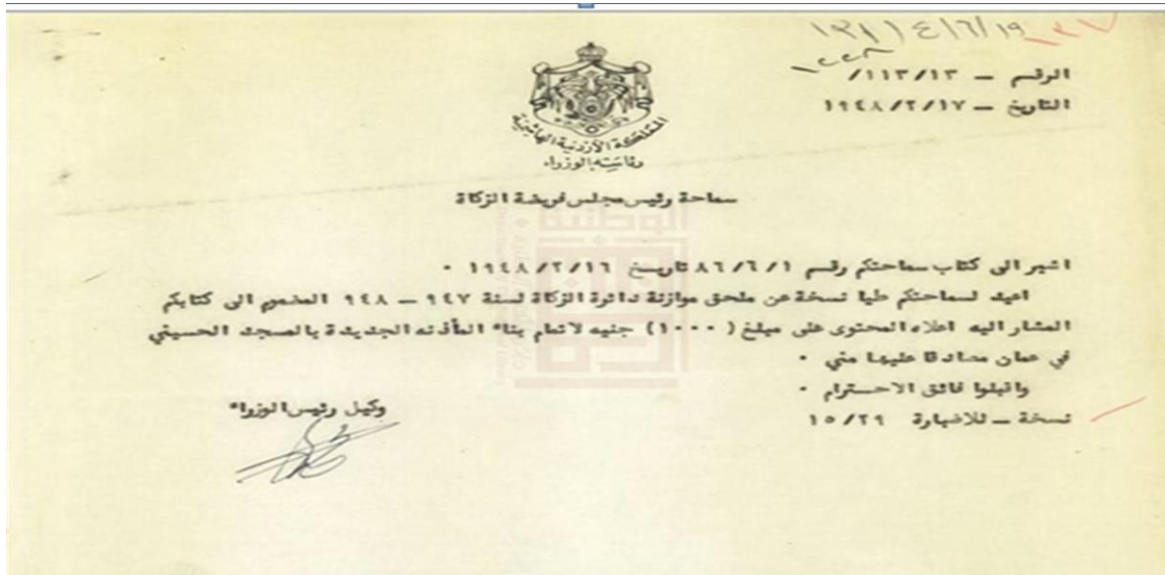 ١٩/٦/٤/١٣٨١
١٣٧
١٢٢٨
الرقم — ١١٣/١٣/
التاريخ — ١٩٤٨/٢/١٧
المملكة الأردنية الهاشمية
رئاسة الوزراء
سماحة رئيس مجلس فريضة الزكاة
الوطنية
اشير الى كتاب سماحتكم رقم ٨٦/٦/١ تاريخ ١٩٤٨/٢/١٦ ٠
اعيد لسماحتكم طيا نسخة عن ملحق موازنة دائرة الزكاة لسنة ٩٤٧ — ٩٤٨ المضموم الى كتابكم
المشار اليه اعلاه المحتوى على مبلغ (١٠٠٠) جنيه لاتمام بناء المأذنه الجديدة بالمسجد الحسيني
في عمان مصادقا عليها مني ٠
واقبلوا فائق الاحترام ٠
وكيل رئيس الوزراء
نسخة — للاضبارة ١٥/٢٩